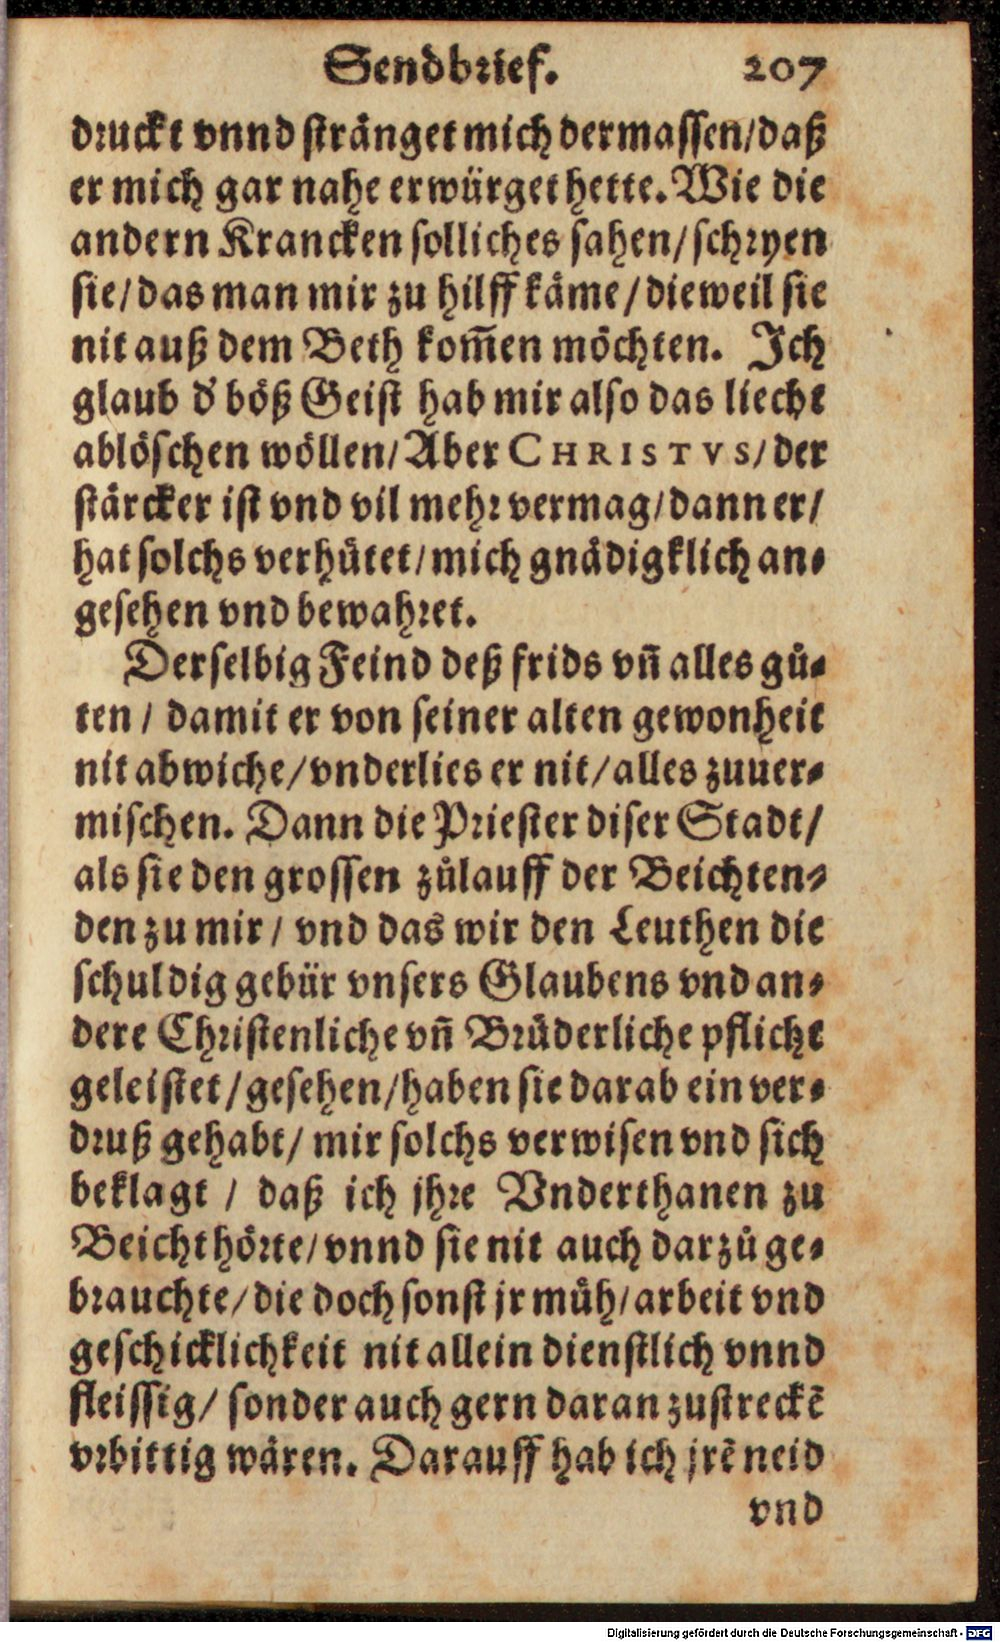 Sendbrief. 207
druckt vnnd stränget mich dermassen/daß
er mich gar nahe erwürget hette. Wie die
andern Krancken solliches sahen/schryen
sie/das man mir zu hilff käme/dieweil sie
nit auß dem Beth kom̄en möchten. Ich
glaub d' böß Geist hab mir also das liecht
ablöschen wöllen/Aber CHRISTVS/der
stärcker ist vnd vil mehr vermag/dann er/
hat solchs verhütet/mich gnädigklich an-
gesehen vnd bewahret.
Derselbig Feind deß frids vn̄ alles gů-
ten/ damit er von seiner alten gewonheit
nit abwiche/vnderlies er nit/alles zuuer-
mischen. Dann die Priester diser Stadt/
als sie den grossen zůlauff der Beichten-
den zu mir/ vnd das wir den Leuthen die
schuldig gebür vnsers Glaubens vnd an-
dere Christenliche vn̄ Brüderliche pflicht
geleistet/gesehen/haben sie darab ein ver-
druß gehabt/ mir solchs verwisen vnd sich
beklagt/ daß ich jhre Vnderthanen zu
Beicht hörte/vnnd sie nit auch darzů ge-
brauchte/die doch sonst jr müh/arbeit vnd
geschicklichkeit nit allein dienstlich vnnd
fleissig/ sonder auch gern daran zustreckē
vrbittig wären. Darauff hab ich jrē neid
vnd
Digitalisierung gefördert durch die Deutsche Forschungsgemeinschaft - DFG